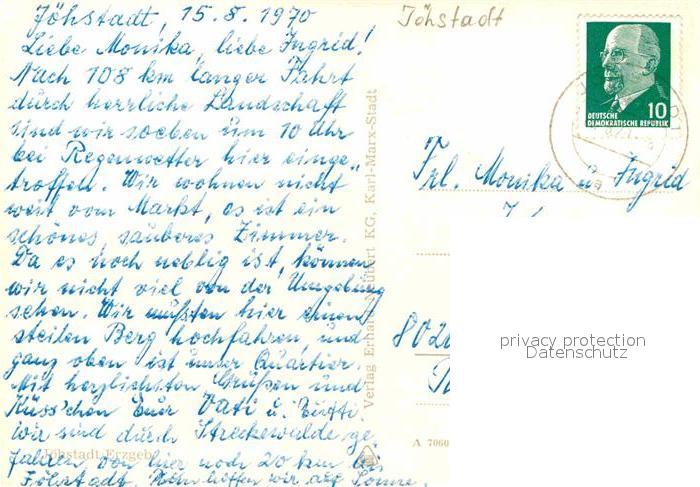 Jöhstadt, 15.8.1970
Liebe Monika, liebe Ingrid!
Nach 108 km langer Fahrt
durch herrliche Landschaft
sind wir soeben um 10 Uhr
bei Regenwetter hier einge-
troffen. Wir wohnen nicht
weit vom Markt, es ist ein
schönes, sauberes Zimmer.
Da es noch neblig ist, können
wir nicht viel von der Umgebung
sehen. Wir mußten hier einen
steilen Berg hochfahren, und
ganz oben ist unser Quartier.
Mit herzlichsten Grüßen und
Küss'chen Euer Vati u.
wir sind durch Streckewalde ge-
fahren, von hier noch 20 km bis
Jöhstadt. hoffen wir auf Sonne.
Jöhstadt Erzgeb
Verlag Erhard Neubert KG, Karl-Marx-Stadt
Jöhstadt
10
DEUTSCHE
DEMOKRATISCHE REPUBLIK
Frl. Monika u. Ingrid
802
A 7060
privacy protection
Datenschutz